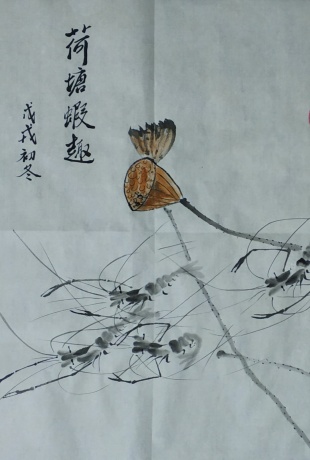 荷塘蝦趣
戊戌初冬